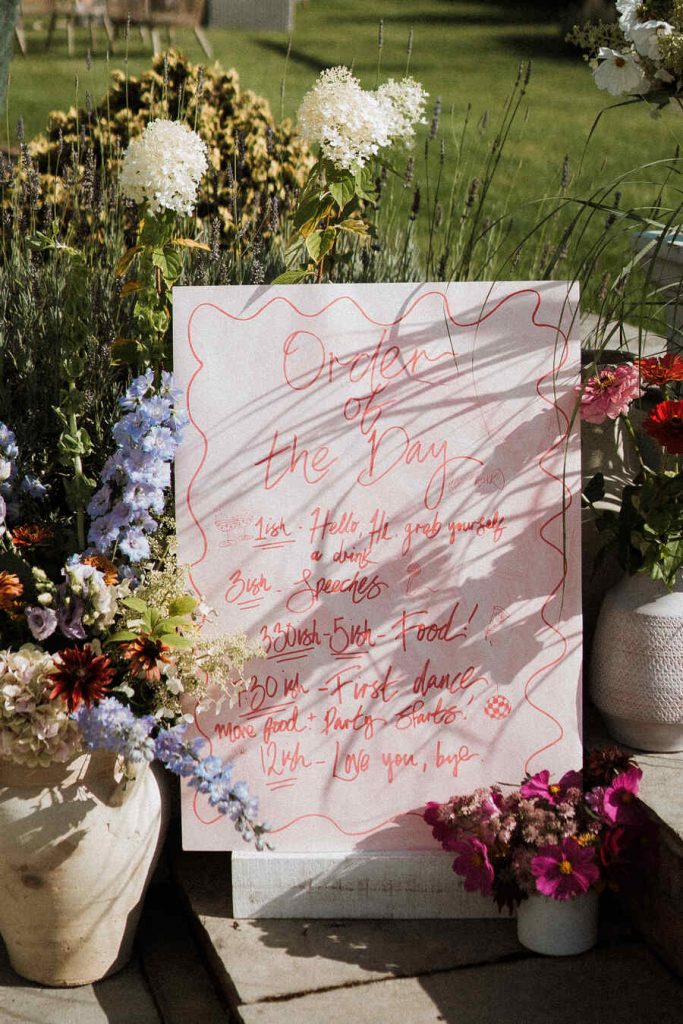 Order
of
the Day
1ish - Hello, Hi, grab yourself
a drink
3ish - Speeches
330ish - 5ish - Food!
730ish - First dance
more food + Party Starts!
12ish - Love you, bye.